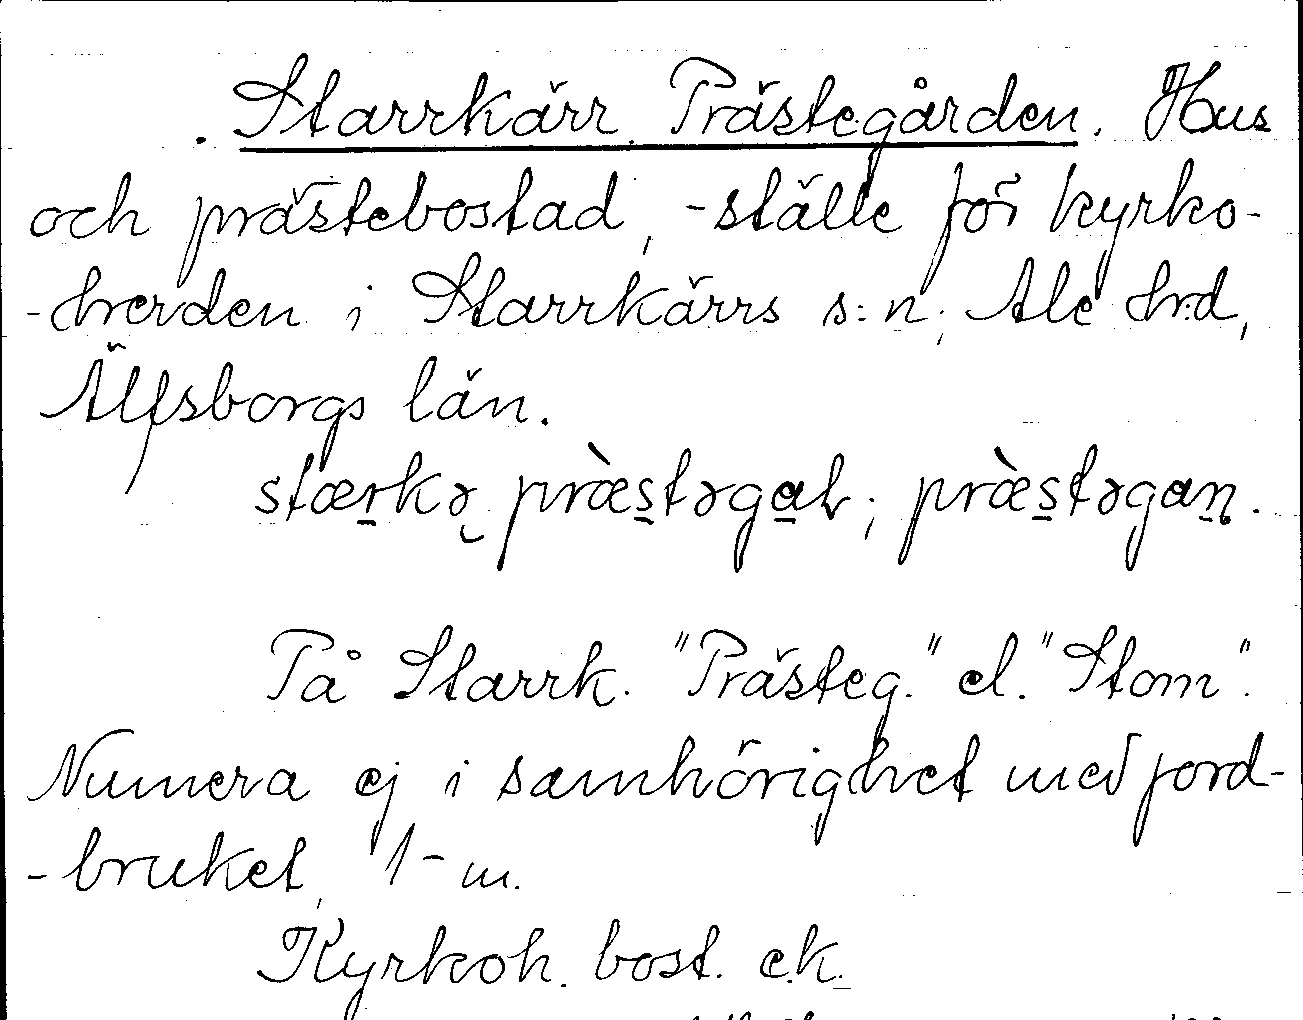 . Starrkärr, Prästegården. Hus
och prästebostad, -ställe för kyrko-
-herden i Starrkärrs s:n, Ale hd,
Älfsborgs län.
stærkə præ̀stəgaɫ; præ̀stəgaṇ.
På Starrk. "Prästeg." el. "Stom".
Numera ej i samhörighet med jord-
-bruket, 1-m.
Kyrkoh. bost. e.k.